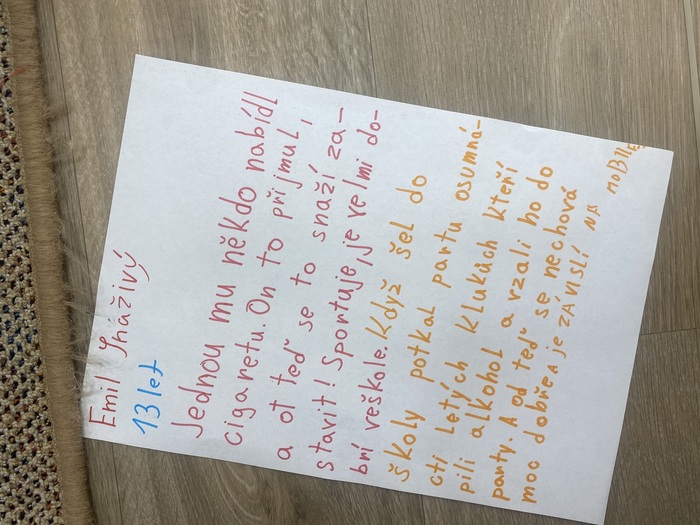 Emil Snaživý
13 let
Jednou mu někdo nabídl
cigaretu. On to přijmul,
a ot teď se to snaží za-
stavit! Sportuje, je velmi do-
brí veškole. Když šel do
školy potkal partu osumná-
cti letých klukůch kteří
pili alkohol a vzali ho do
party. A od teď se nechová
moo dobře A je ZÁVISLÍ NA MOBILE